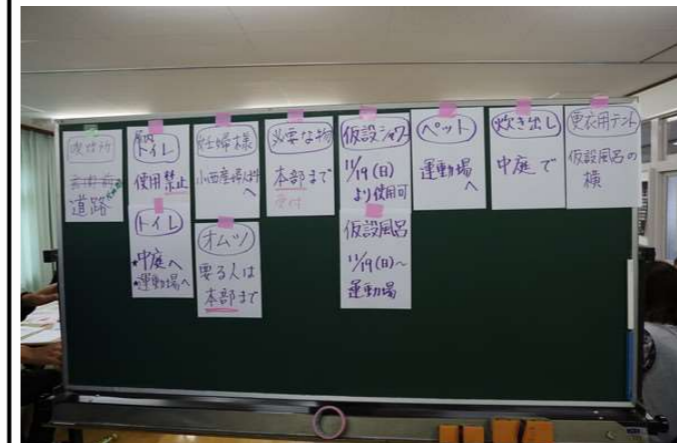 喫煙所
玄関前
道路
屋内
トイレ
使用禁止
トイレ
★中庭へ
★運動場へ
妊婦様
小西産婦人科
へ
オムツ
要る人は
本部まで
必要な物
本部まで
受付
仮設シャワー
11/19(日)
より使用可
仮設風呂
11/19(日)~
運動場
ペット
運動場
へ
炊き出し
中庭で
更衣用テント
仮設風呂の
横